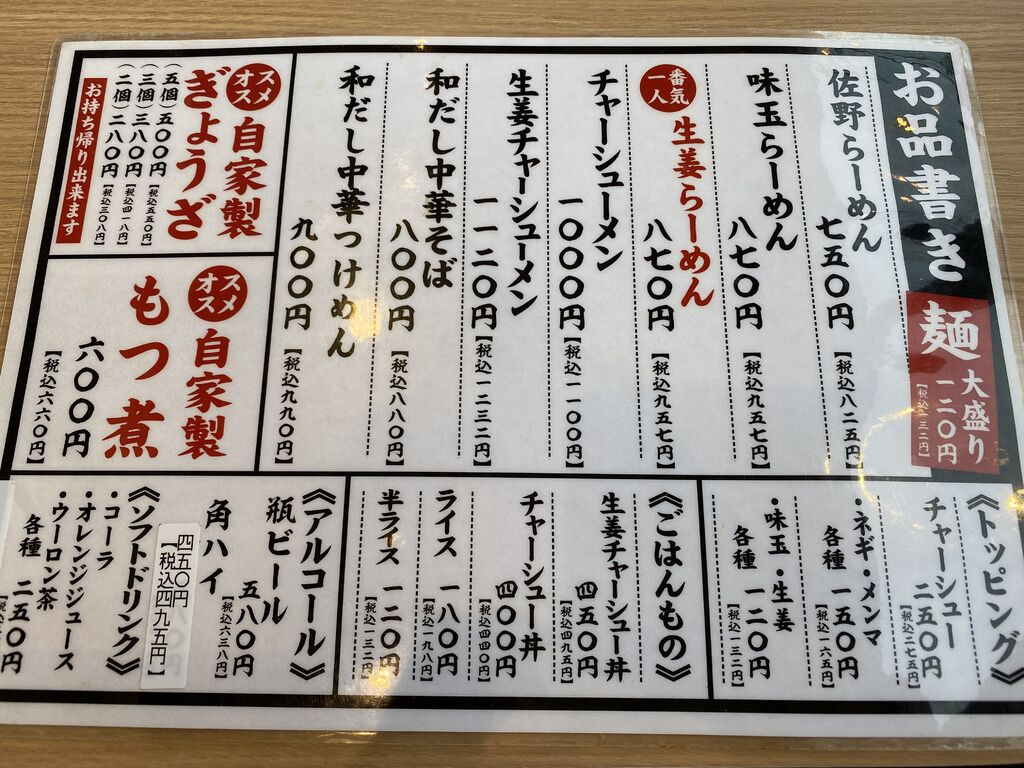 お品書き
麺
大盛り
一二〇円
【税込一三二円】
佐野らーめん
七五〇円
【税込八二五円】
味玉らーめん
八七〇円
【税込九五七円】
一番人気
生姜らーめん
八七〇円
【税込九五七円】
チャーシューメン
一〇〇〇円
【税込一一〇〇円】
生姜チャーシューメン
一一二〇円
【税込一二三二円】
和だし中華そば
八〇〇円
【税込八八〇円】
和だし中華つけめん
九〇〇円
【税込九九〇円】
オススメ
自家製
ぎょうざ
(五個)五〇〇円【税込五五〇円】
(三個)三八〇円【税込四一八円】
(二個)二八〇円【税込三〇八円】
お持ち帰り出来ます
オススメ
自家製
もつ煮
六〇〇円
【税込六六〇円】
《トッピング》
チャーシュー
二五〇円
【税込二七五円】
ネギ・メンマ
各種 一五〇円
【税込一六五円】
・味玉・生姜
各種 一二〇円
【税込一三二円】
《ごはんもの》
生姜チャーシュー丼
四五〇円
【税込四九五円】
チャーシュー丼
四〇〇円
【税込四四〇円】
ライス 一八〇円
【税込一九八円】
半ライス 一二〇円
【税込一三二円】
《アルコール》
瓶ビール
五八〇円
【税込六三八円】
角ハイ
四五〇円
【税込四九五円】
《ソフトドリンク》
・コーラ
・オレンジジュース
・ウーロン茶
各種 二五〇円